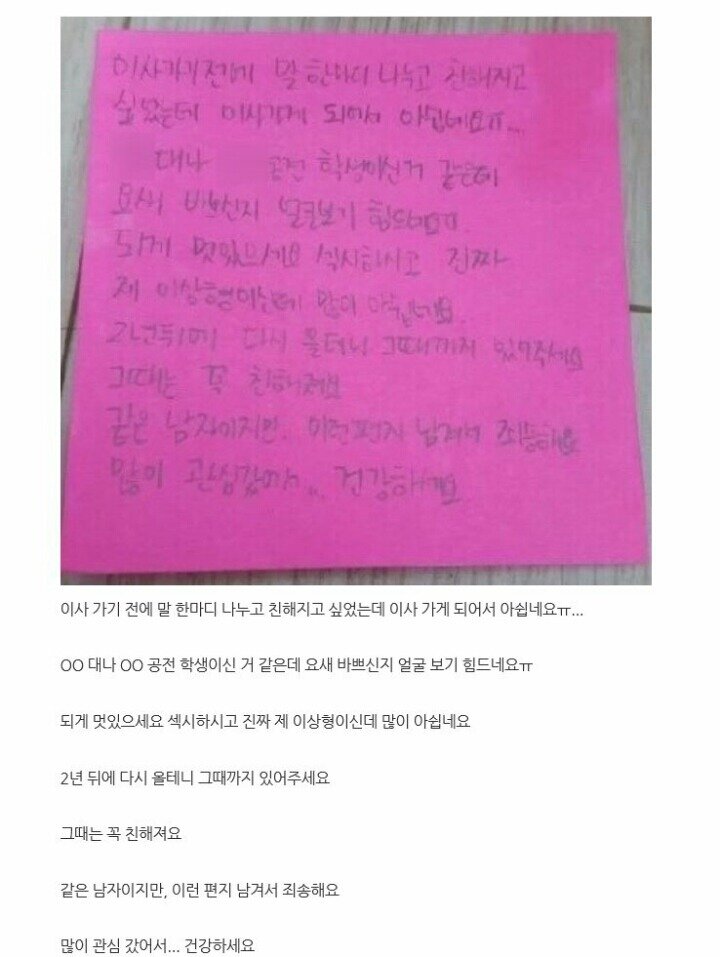 이사가기전에 말 한마디 나누고 친해지고
싶었는데 이사가게 되어서 아쉽네요ㅠ...
대나 공전 학생이신거 같은데
요새 바쁘신지 얼굴보기 힘드네요ㅠ
되게 멋있으세요 섹시하시고 진짜
제 이상형이신데 많이 아쉽네요.
2년뒤에 다시 올테니 그때까지 있어주세요
그때는 꼭 친해져요
같은 남자이지만, 이런편지 남겨서 죄송해요
많이 관심갔어서... 건강하세요
이사 가기 전에 말 한마디 나누고 친해지고 싶었는데 이사 가게 되어서 아쉽네요ㅠ...
OO 대나 OO 공전 학생이신 거 같은데 요새 바쁘신지 얼굴 보기 힘드네요ㅠ
되게 멋있으세요 섹시하시고 진짜 제 이상형이신데 많이 아쉽네요
2년 뒤에 다시 올테니 그때까지 있어주세요
그때는 꼭 친해져요
같은 남자이지만, 이런 편지 남겨서 죄송해요
많이 관심 갔어서... 건강하세요